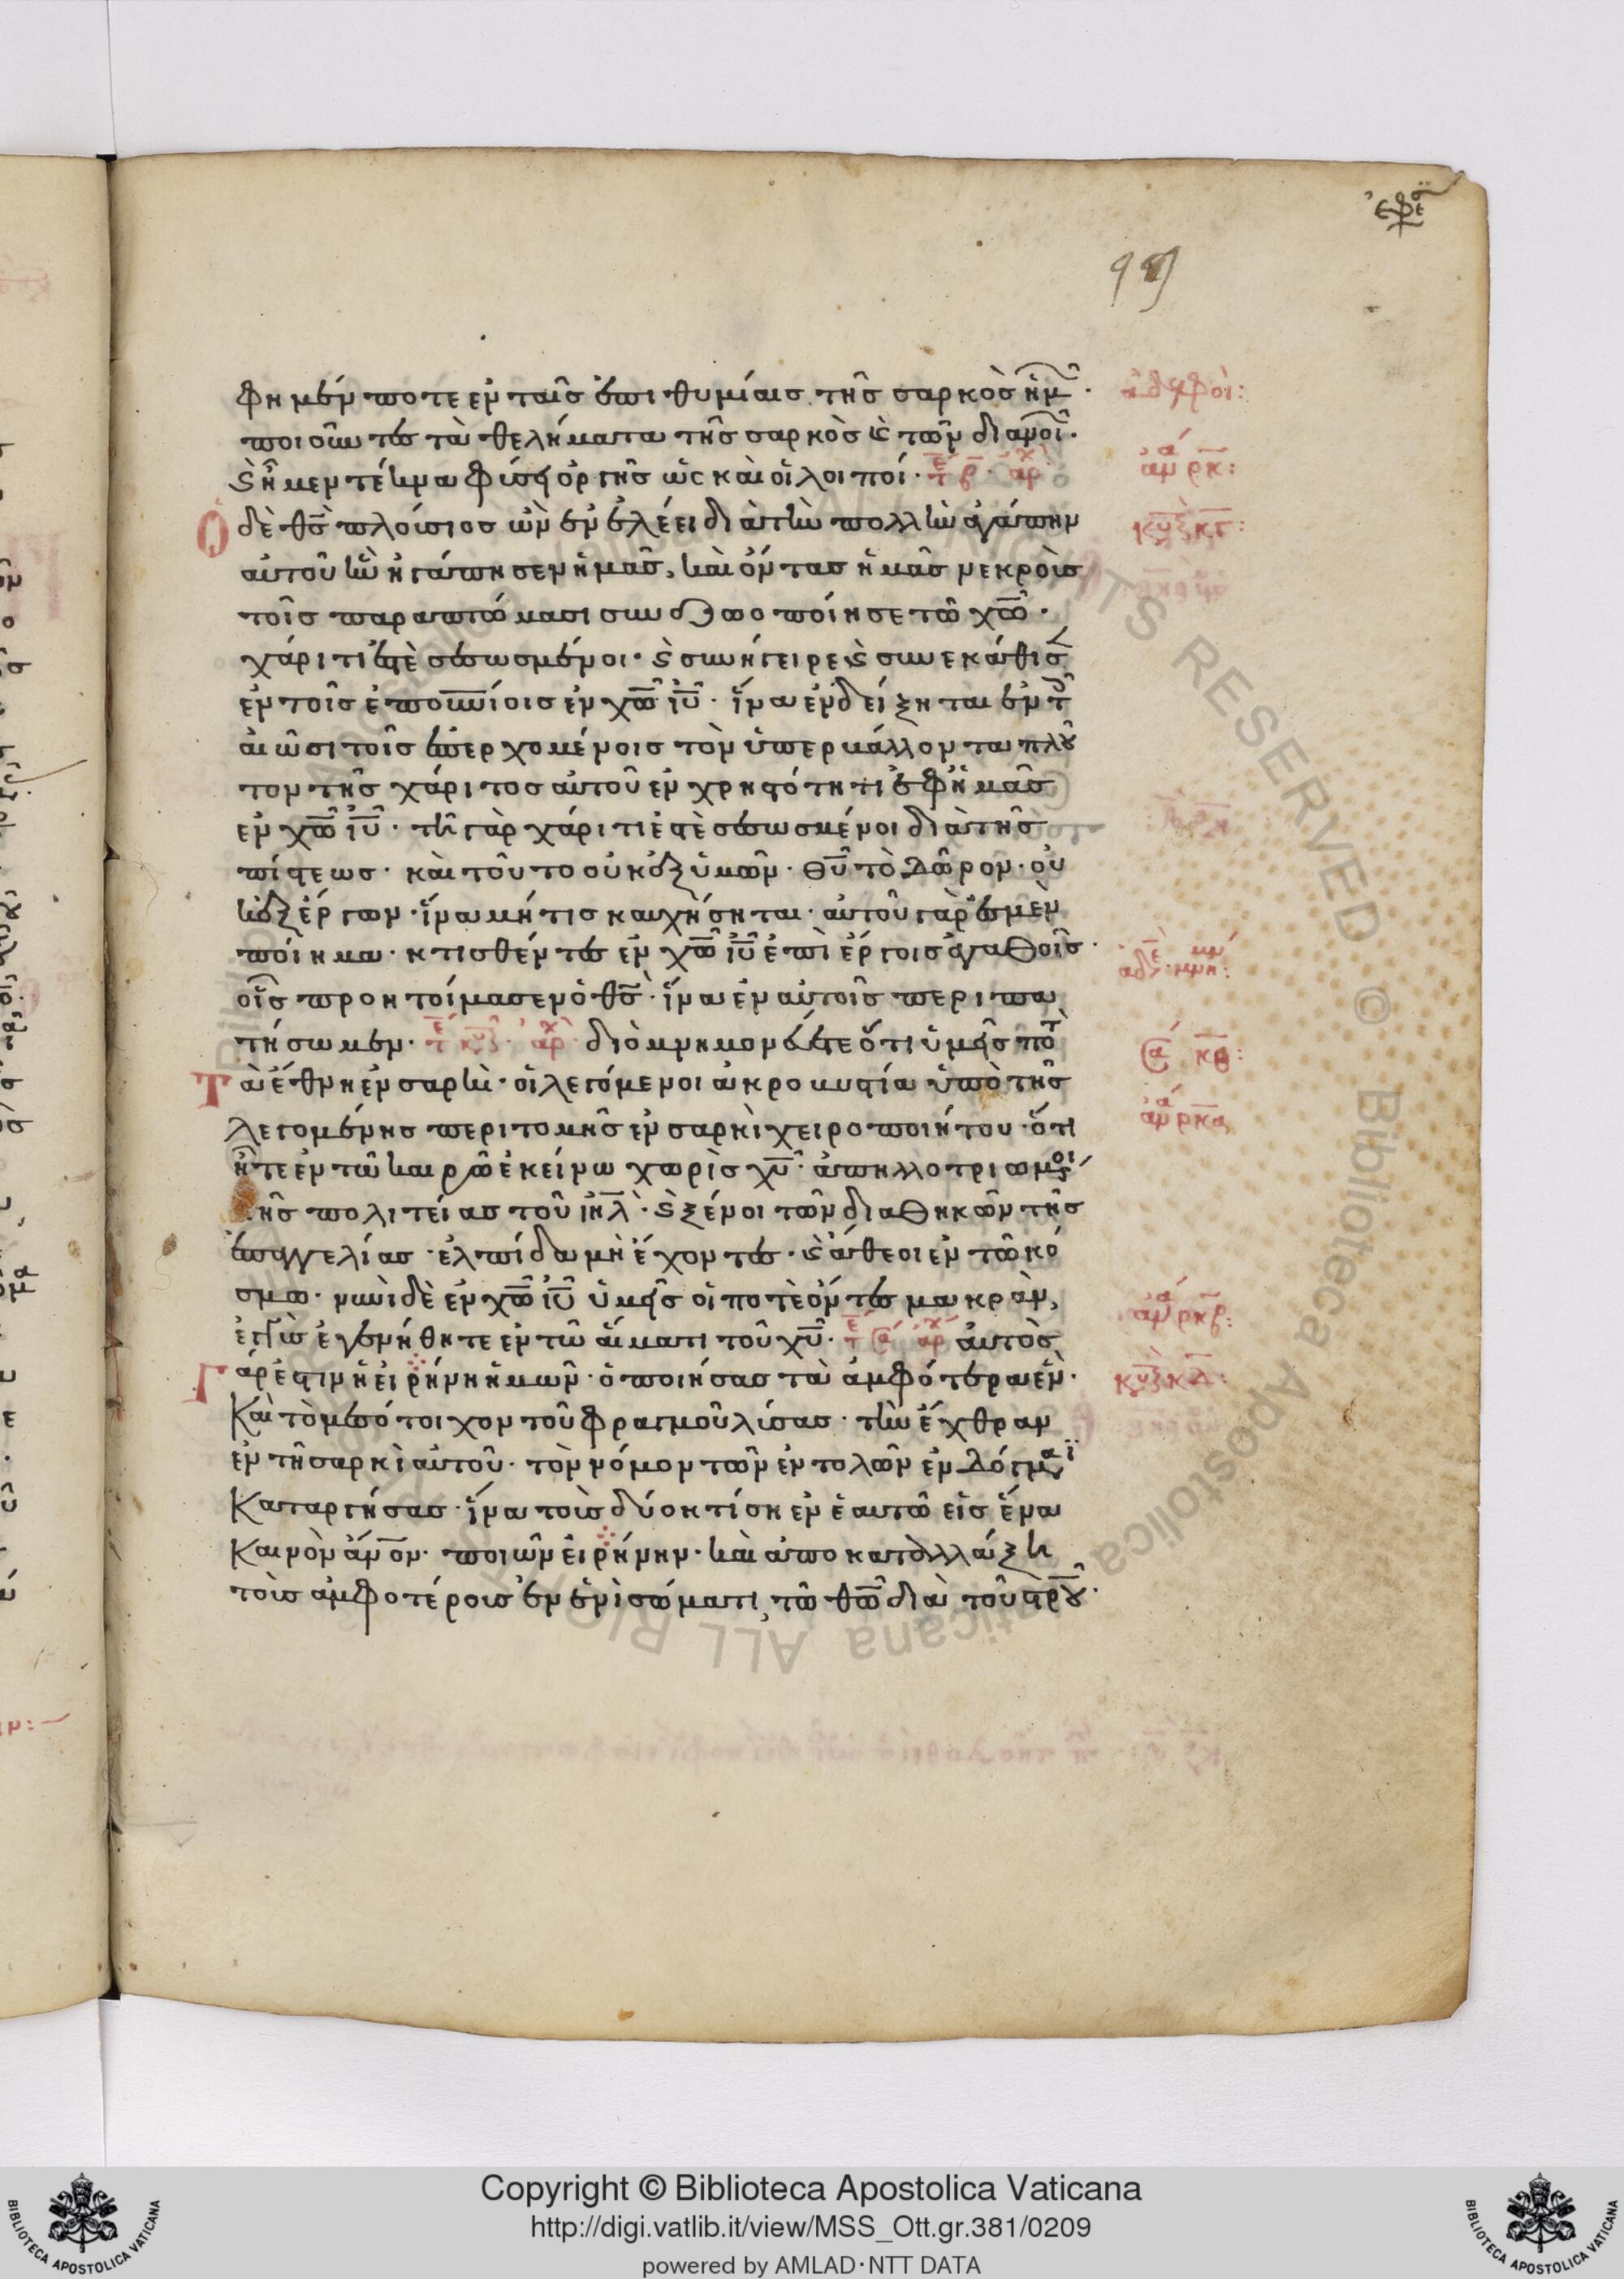 φημέν ποτε ἐν ταῖς ἐπιθυμίαις τῆς σαρκὸς ἡμ ·
ποιοῦντες τὰ θελήματα τῆς σαρκὸς ϗ τῶν διανοι ·
ϗ ἦμεν τέκνα φύσει ὀργῆς ὡς καὶ οἱ λοιποί ·
Ὁ δὲ θς πλούσιος ὢν ἐν ἐλέει διὰ τὴν πολλὴν ἀγάπην
αὐτοῦ ἣν ἠγάπησεν ἡμᾶς, καὶ ὄντας ἡμᾶς νεκροὺς
τοῖς παραπτώμασι συνεζωοποίησε τῶ χω ·
χάριτί ἐστε σεσωσμένοι · ϗ συνήγειρε ϗ συνεκάθισ
ἐν τοῖς ἐπουνίοις ἐν χω ιυ · ἵνα ἐνδείξηται ἐν τ
αἰῶσι τοῖς ἐπερχομένοις τὸν ὑπερβάλλοντα πλου
τον τῆς χάριτος αὐτοῦ ἐν χρηστότητι ἐφ ἡμᾶς
ἐν χω ιυ · τῆ γὰρ χάριτι ἐστὲ σεσωσμένοι διὰ τῆς
πίστεως · καὶ τοῦτο οὐκ ἐξ ὑμῶν · θυ τὸ δῶρον · οὐ
κ ἐξ ἔργων · ἵνα μή τις καυχήσηται · αὐτοῦ γάρ ἐσμὲν
ποίημα · κτισθέντες ἐν χω ιυ ἐπὶ ἔργοις ἀγαθοῖς ·
οἷς προητοίμασεν ὁ θς · ἵνα ἐν αὐτοῖς περιπα
τήσωμεν · διὸ μνημονεύετε ὅτι ὑμεῖς ποτ
Τὰ ἔθνη ἐν σαρκὶ · οἱ λεγόμενοι ἀκροβυστία ὑπὸ τῆς
λεγομένης περιτομῆς ἐν σαρκὶ χειροποιήτου · ὅτι
ἦτε ἐν τῶ καιρῶ ἐκείνω χωρὶς χυ · ἀπηλλοτριωμοι
τῆς πολιτείας τοῦ ιηλ · ϗ ξένοι τῶν διαθηκῶν τῆς
ἐπαγγελίας · ἐλπίδα μὴ ἔχοντες · ϗ ἄθεοι ἐν τῶ κό
σμω · νυνὶ δὲ ἐν χω ιυ ὑμεῖς οἵ ποτὲ ὄντες μακρὰν,
ἐγγὺς ἐγενήθητε ἐν τῶ αἵματι τοῦ χυ · αὐτὸς
Γάρ ἐστιν ἡ εἰρήνη ἡμῶν · ὁ ποιήσας τὰ ἀμφότερα ἓν ·
Καὶ τὸ μεσότοιχον τοῦ φραγμοῦ λύσας · τὴν ἔχθραν
ἐν τῆ σαρκὶ αὐτοῦ · τὸν νόμον τῶν ἐντολῶν ἐν δόγμαϊ
Καταργήσας · ἵνα τοὺς δύο κτίση ἐν ἑαυτῶ εἰς ἕνα
Καινὸν ἀνον · ποιῶν εἰρήνην · καὶ ἀποκαταλλάξη
τοὺς ἀμφοτέρους ἐν ἑνὶ σώματι, τῶ θω διὰ τοῦ στρου ·
ἀδελφοί:
κυξ κγ:
κυξ κδ:
Copyright © Biblioteca Apostolica Vaticana
http://digi.vatlib.it/view/MSS_Ott.gr.381/0209
powered by AMLAD·NTT DATA
BIBLIOTECA APOSTOLICA VATICANA
BIBLIOTECA APOSTOLICA VATICANA